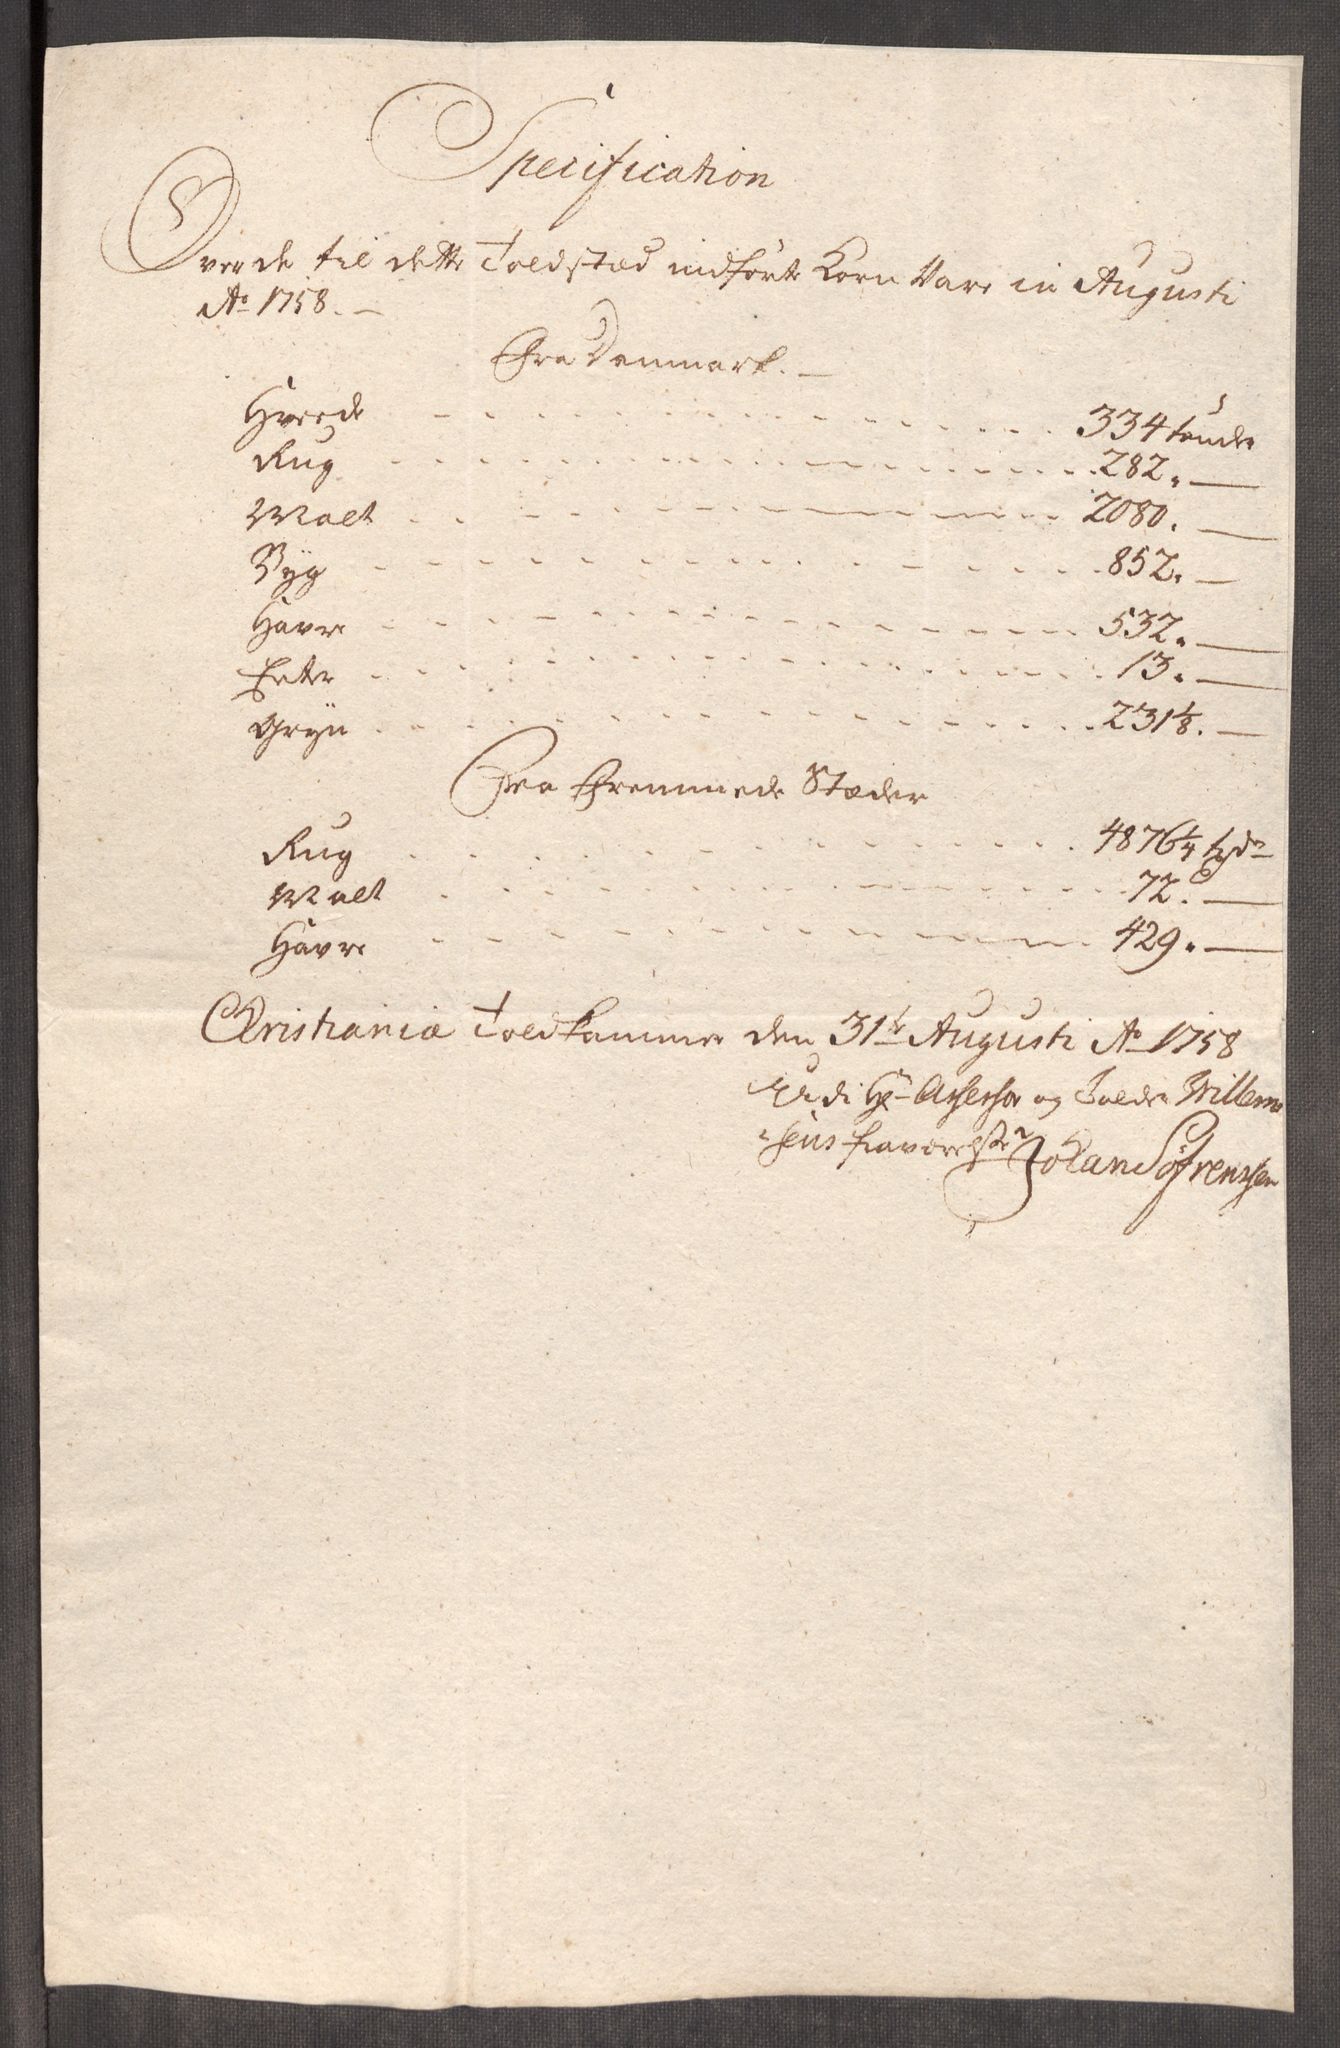 Specification
Over de til dette Toldstæd indførte Korn Vare in Augusti
Ao 1758.
Fra Denmark.
Hvede 334 tønder
Rug 282.
Malt 2080.
Byg 852.
Havre 532.
Erter 13.
Gryn 231 1/8.
Fra Fremmede Stæder
Rug 4876 1/4 tgdr
Malt 72.
Havre 429.
Christiania Toldkammer den 31te Augusti Ao 1758
udi Hr Assessor og Tolder Willem
sens fraværelse Johan Søfrenssen